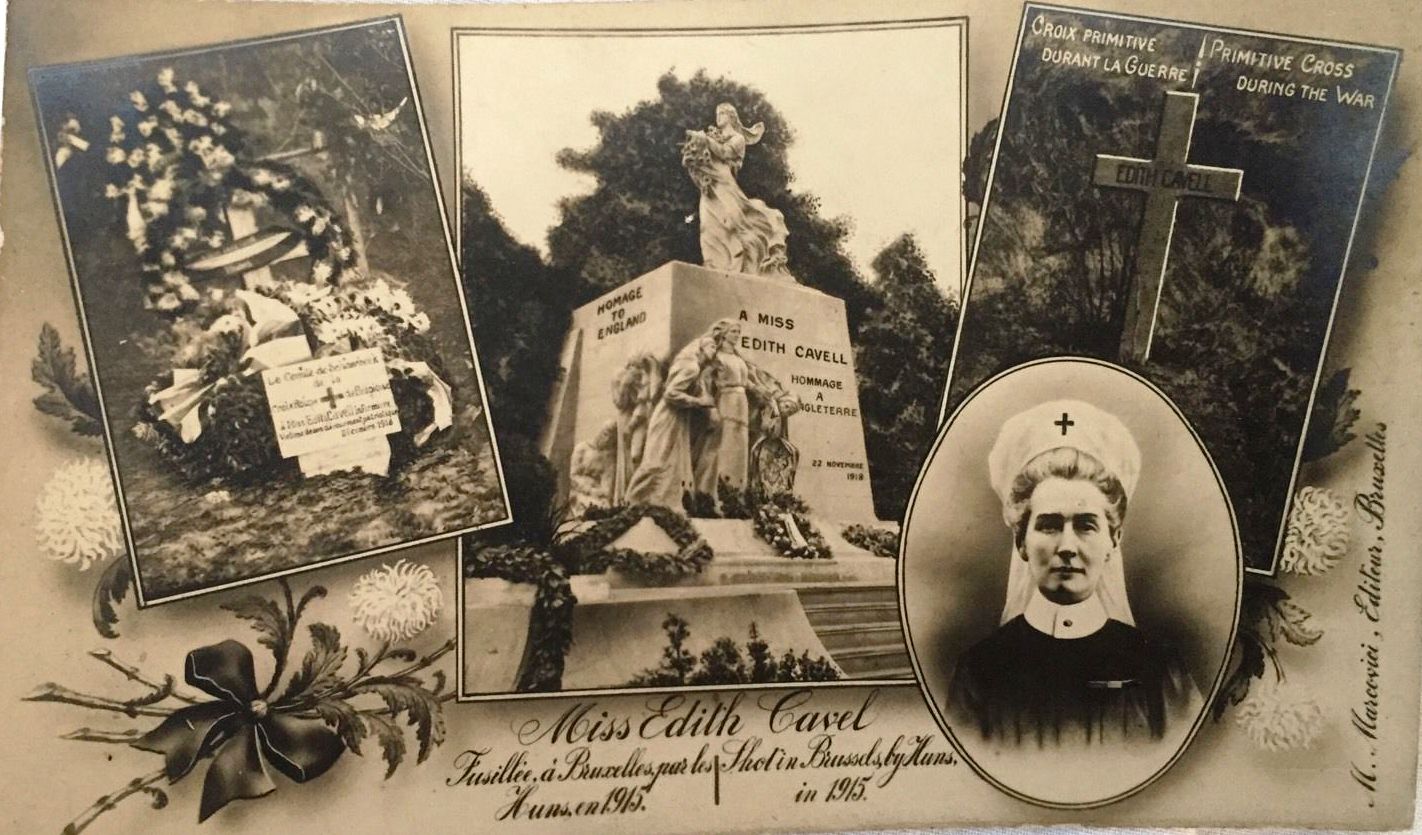 Le Comité de
de la
Croix Rouge de Belgique
à Miss Edith Cavell infirmière
Victime de son dévouement patriotique
1918
HOMAGE
TO
ENGLAND
A MISS
EDITH CAVELL
HOMMAGE
A
NGLETERRE
22 NOVEMBRE
1918
CROIX PRIMITIVE
DURANT LA GUERRE
PRIMITIVE CROSS
DURING THE WAR
EDITH CAVELL
Miss Edith Cavel
Fusillée, à Bruxelles, par les
Huns, en 1915.
Shot in Brussels, by Huns,
in 1915.
M. Marcovici, Editeur, Bruxelles